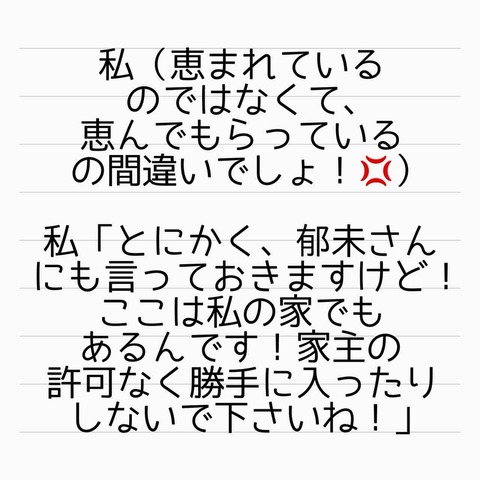 私（恵まれている
のではなくて、
恵んでもらっている
の間違いでしょ！💢）
私「とにかく、郁未さん
にも言っておきますけど！
ここは私の家でも
あるんです！家主の
許可なく勝手に入ったり
しないで下さいね！」